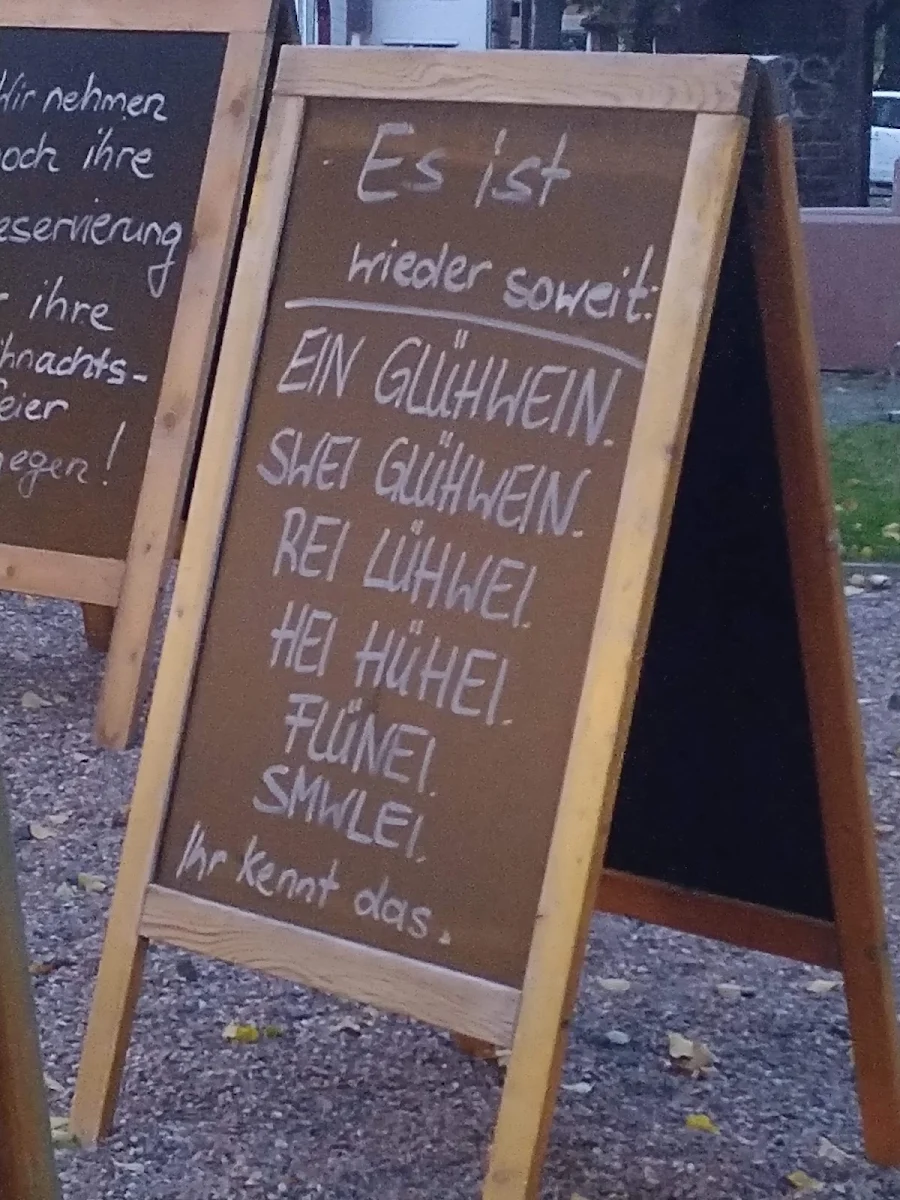 Wir nehmen
noch ihre
eservierung
ihre
ihnachts-
feier
egen!
Es ist
wieder soweit:
EIN GLÜHWEIN.
SWEI GLÜHWEIN.
REI LÜHWEI.
HEI HÜHEI.
FLÜNEI.
SMWLEI.
Ihr kennt das.